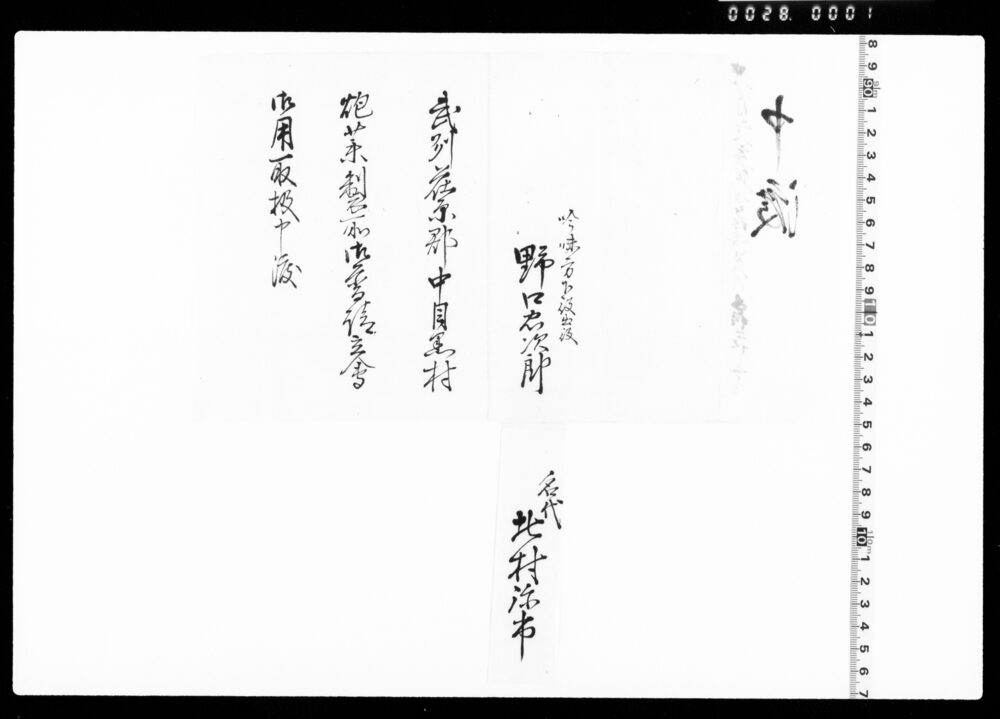 0028. 0001
申渡
吟味方下役出役
野口忠次郎
名代
北村弥市
武州荏原郡中目黒村
炮薬製所御普請立會
御用取扱申渡
8 9 90 1 2 3 4 5 6 7 8 9 10 1 2 3 4 5 6 7 8 9 10 1 2 3 4 5 6 7